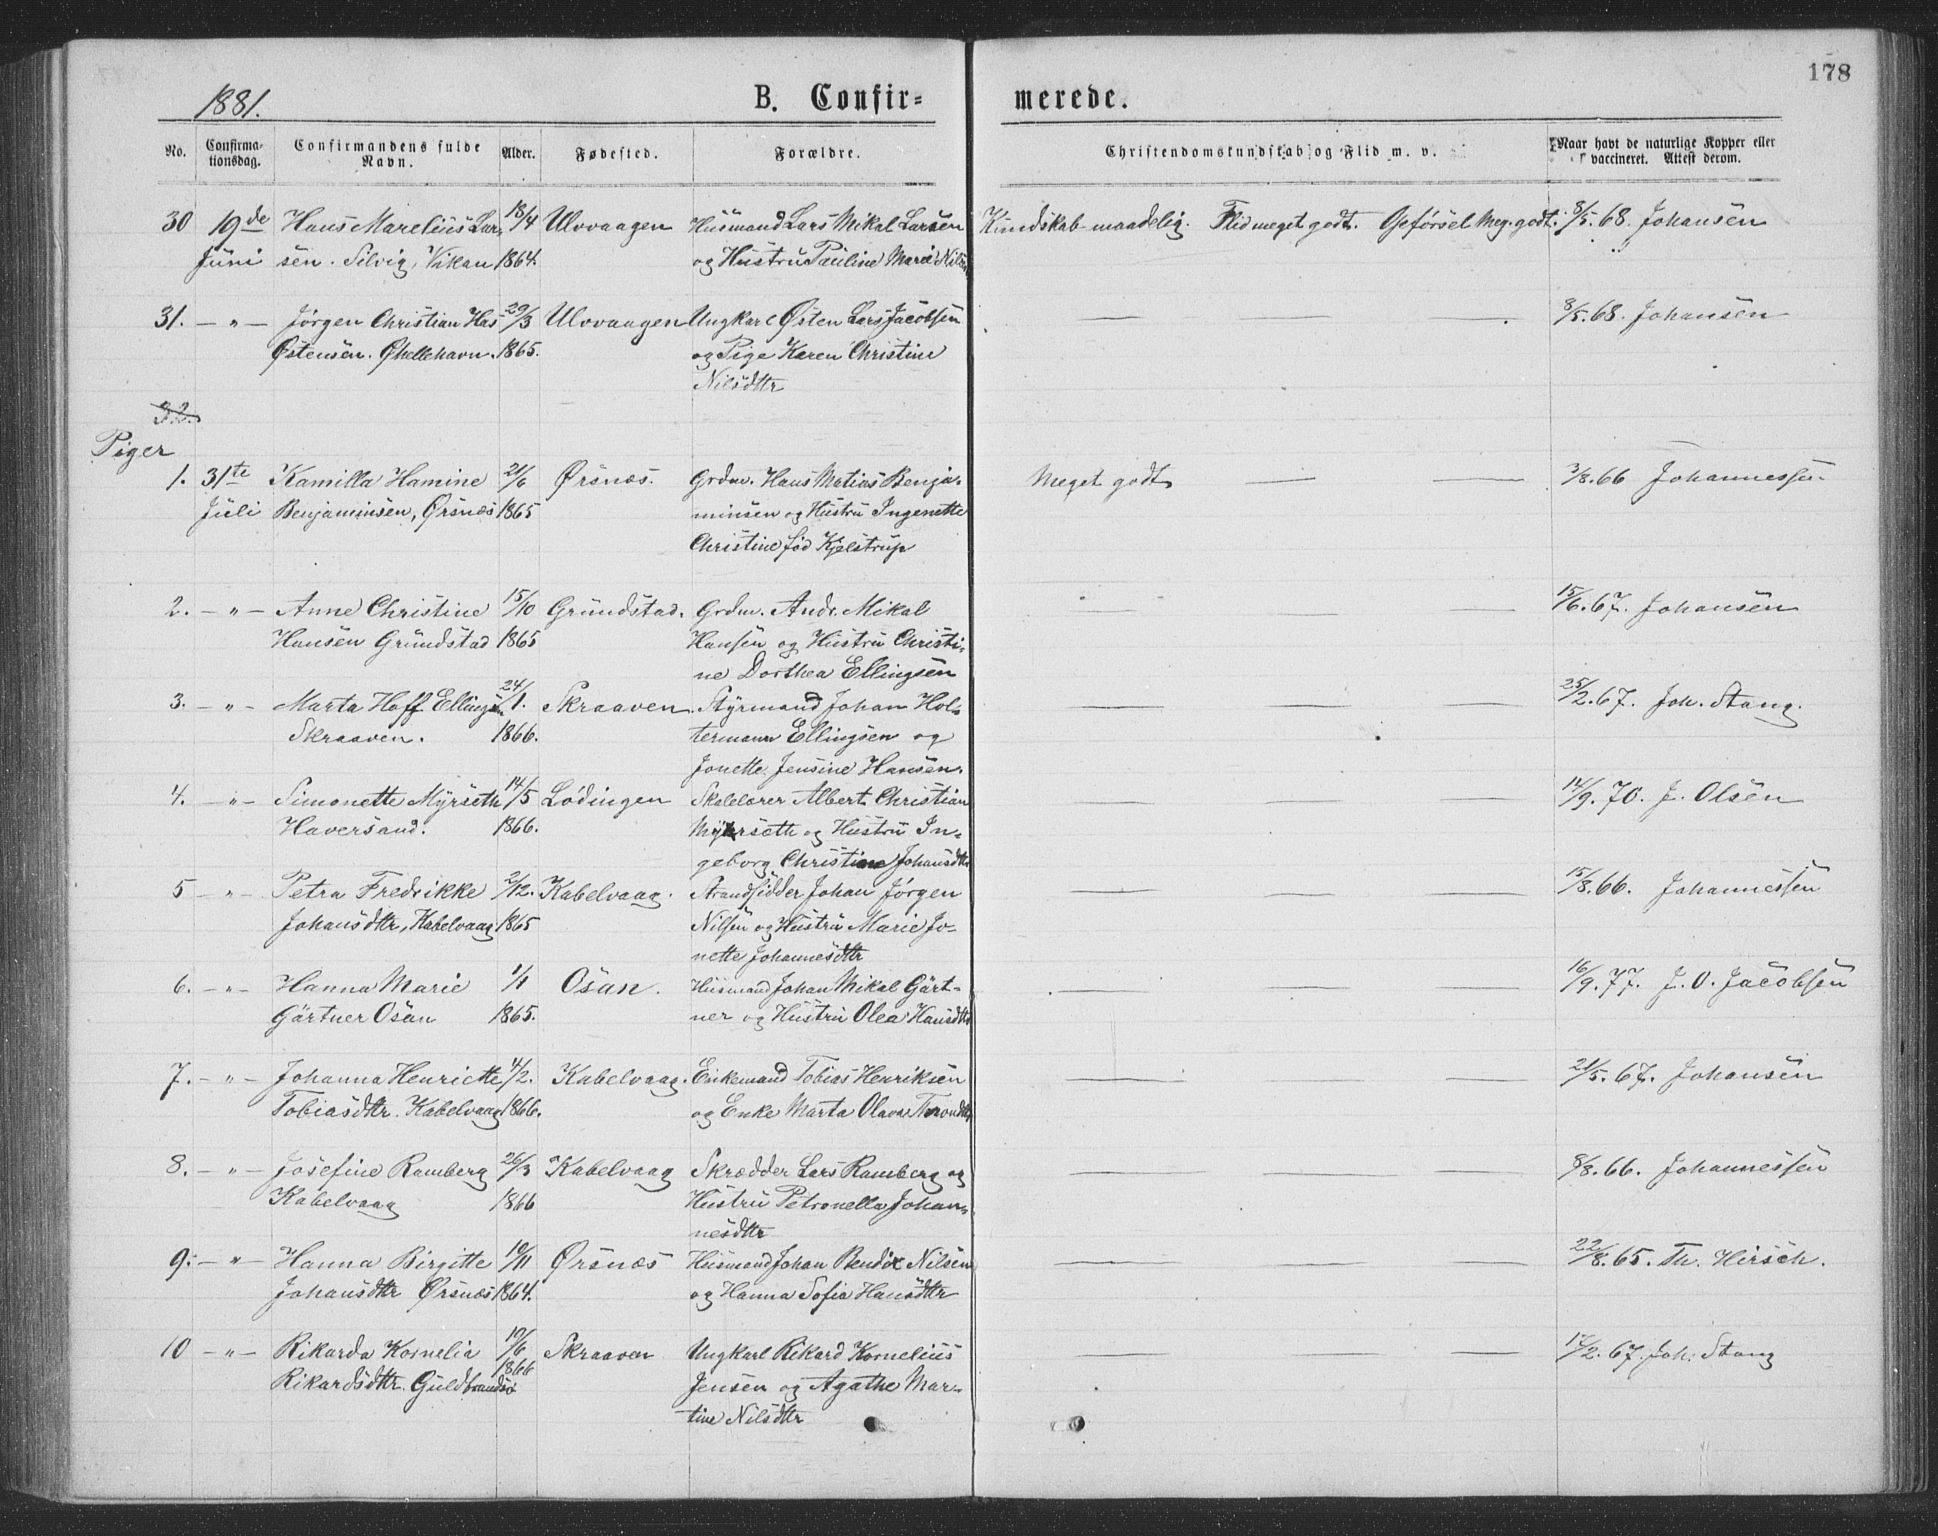 178
1881.
B. Confir= merede.
No. Confirma-tionsdag. Confirmandens fulde Navn. Alder. Fødested. Forældre. Christendomskundskab og Flid m. v. Naar havt de naturlige Kopper eller vaccineret. Attest derom.
30 19de Hans Marelius Lar, 18/4 Ulvvaagen Husmand Lars Mikal Larsen Kundskab maadelig. Flid meget godt. Opførsel Meg. godt. 8/5. 68. Johansen
Juni sen. Silvig, Vikan 1864. og Hustru Pauline Marie Nils
31. — " — Jørgen Christian Has 29/3 Ulvvaagen Ungkarl Østen Lars Jacobsen — — 8/5. 68. Johansen
Østensen. Øhellehavn. 1865. og Pige Karen Christine
Nilsdttr
32.
Piger
1. 31te Kamilla Hamine 21/6 Ørsnæs. Grdm. Hans Matias Benja- Meget godt — — 3/8. 66 Johannessen
Juli Benjaminsen, Ørsnæs 1865 minsen og Hustru Ingenette
Christine fød Kjelstrup
2. — " — Anne Christine 15/10 Grundstad. Grdm. Andr. Mikal — — — 15/6. 67. Johansen
Hansen Grundstad 1865 Hansen og Hustru Christi-
ne Dorthea Ellingsen
3. — " — Marta Hoff Ellings 24/1. Skraaven. Styrmand Johan Hol- — — — 25/2. 67. Joh. Stang.
Skraaven. 1866. termann Ellingsen og
Jonette Jensine Hansen.
4. — " — Simonette Myrseth 14/5 Lødingen Skolelærer Albert Christian — — — 14/9. 70. J. Olsen
Haversand. 1866. Myrseth og Hustru In-
geborg Christine Johansdttr
5 — " — Petra Fredrikke 2/12. Kabelvaag. Strandsidder Johan Jørgen — — — 15/8. 66. Johannessen
Johansdttr, Kabelvaag 1865 Nilsen og Hustru Marie Jo-
nette Johannesdttr
6. — " — Hanna Marie 1/1 Osan. Husmand Johan Mikal Gärt- — — — 16/9. 77. J. O. Jacobsen
Gärtner Osan 1865. ner og Hustru Olea Hansdttr
7. — " — Johanna Henriette 4/2. Kabelvaag. Enkemand Tobias Henriksen — — — 21/5. 67. Johansen
Tobiasdttr. Kabelvaag 1866. og Enke Marta Olava Tronds
8. — " — Josefine Ramberg 26/3 Kabelvaag Skrædder Lars Ramberg og — — — 8/8. 66. Johannessen
Kabelvaag 1866 Hustru Petronella Johan-
nesdttr
9. — " — Hanna Birgitte 10/11 Ørsnæs Husmand Johan Bendix Nilsen — — — 22/8. 65. Th. Hirsch.
Johansdttr Ørsnæs 1864. og Hanna Sofia Hansdttr
10 — " — Rikarda Kornelia 10/6 Skraaven Ungkarl Rikard Kornelius — — — 17/2. 67. Joh. Stang
Rikardsdttr. Guldbrandsø 1866 Jensen og Agathe Mar-
tine Nilsdttr